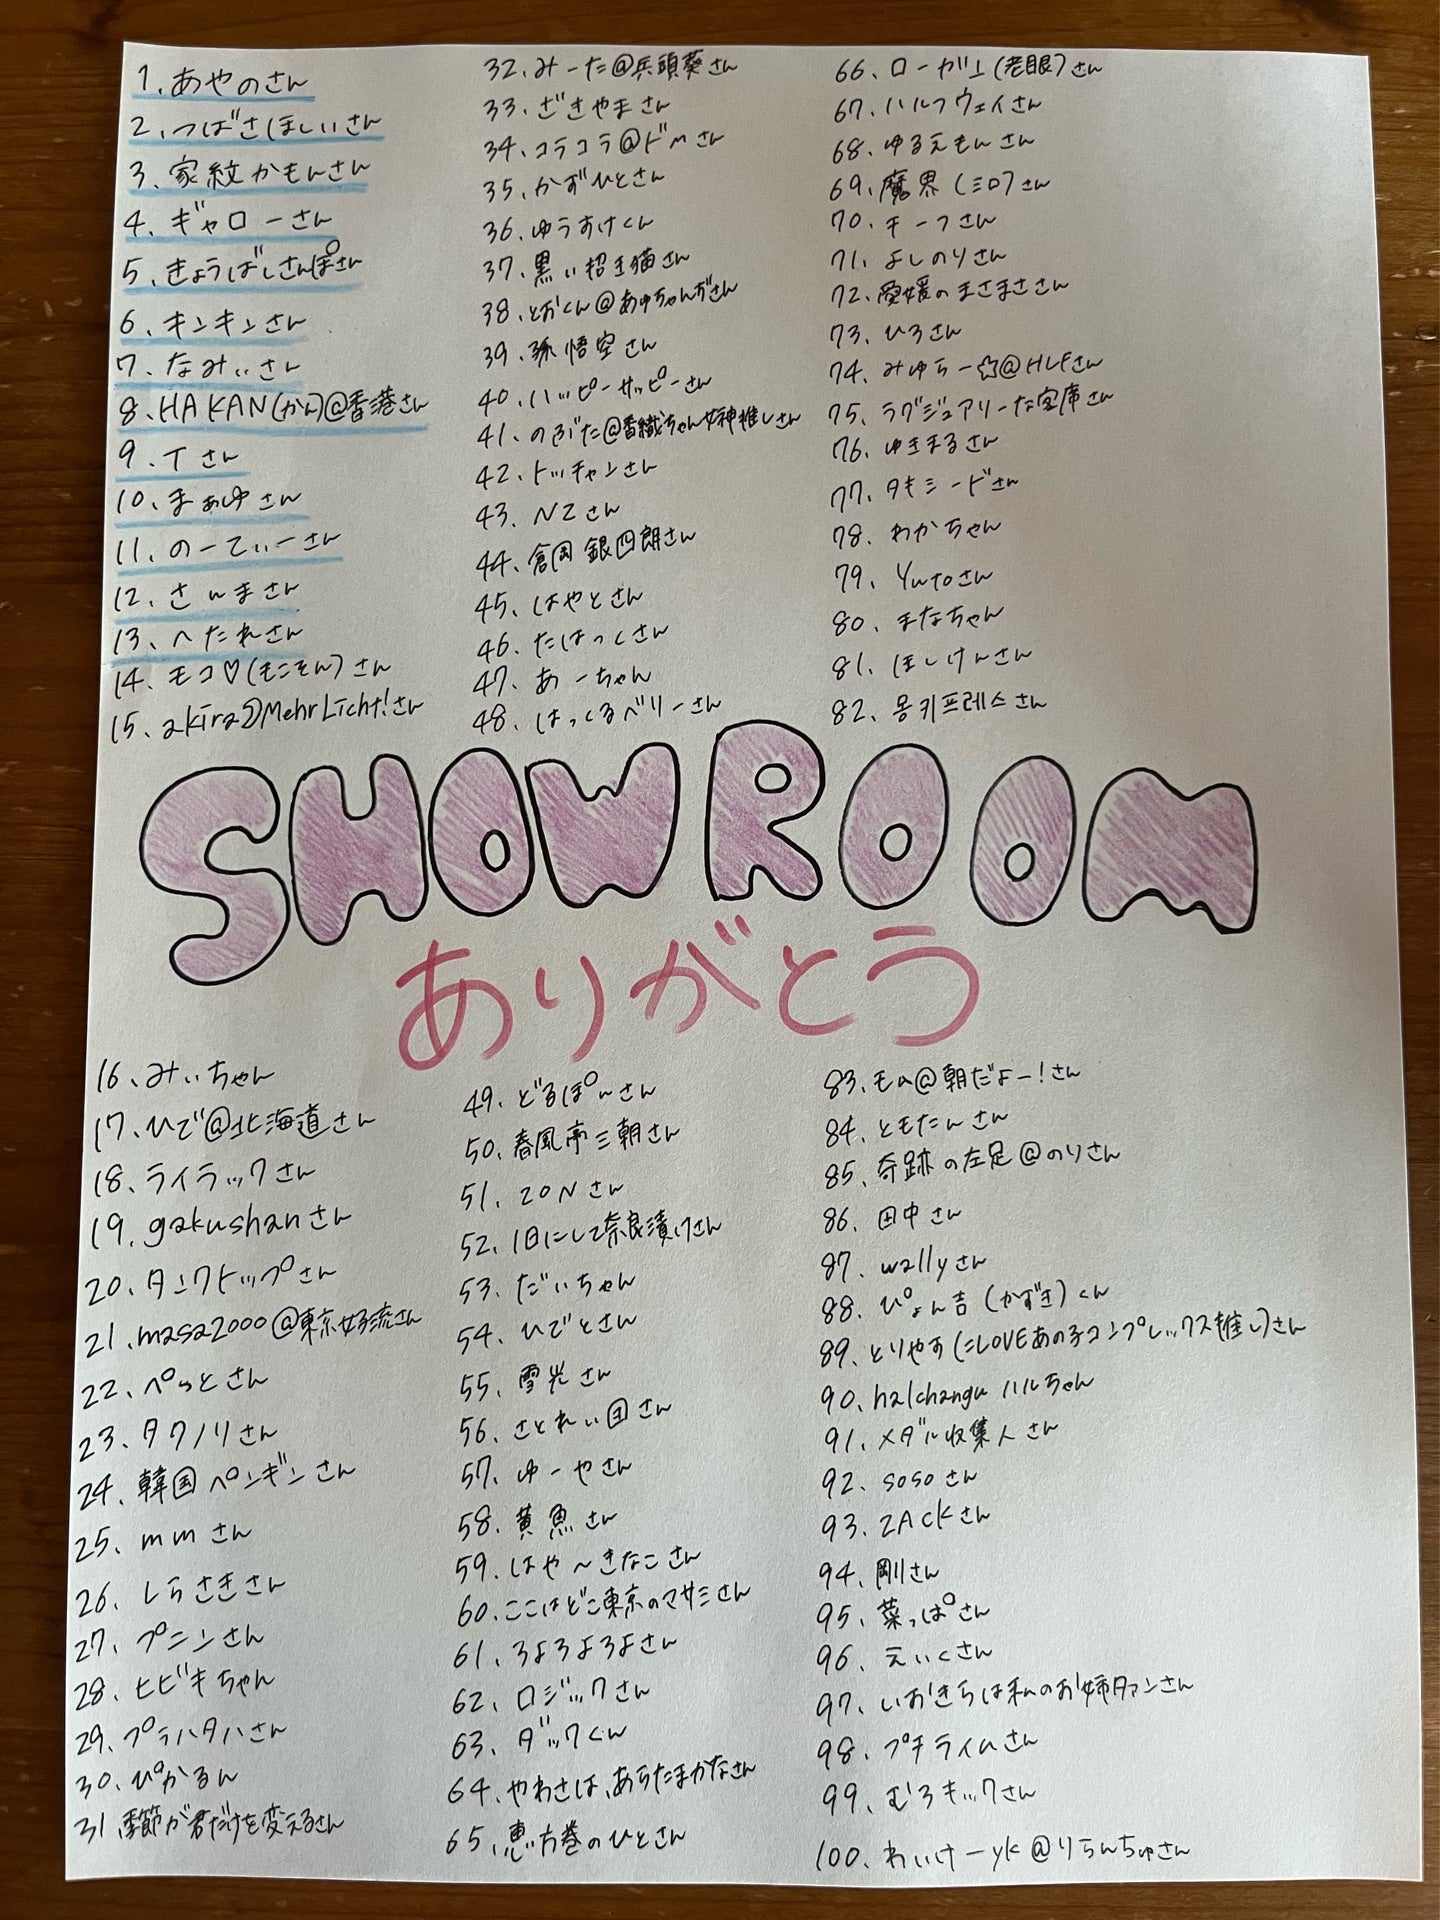 1、あやのさん
2、つばさほしいさん
3、家紋かもんさん
4、ギャローさん
5、きょうばしさんぽさん
6、キンキンさん
7、なみぃさん
8、HAKAN(かん)@香港さん
9、Tさん
10、まぁゆさん
11、のーてぃーさん
12、さんまさん
13、へたれさん
14、モコ♡(もこそん)さん
15、akira@MehrLicht!さん
SHOWROOM
ありがとう
16、みぃちゃん
17、ひで@北海道さん
18、ライラックさん
19、gakushanさん
20、タンクトップさん
21、masa2000@東京好流さん
22、ぺっとさん
23、タクノリさん
24、韓国ペンギンさん
25、mmさん
26、しらさきさん
27、プニンさん
28、ヒビキちゃん
29、プラハタハさん
30、ぴかるん
31、季節が君だけを変えるさん
32、みーた@兵頭葵さん
33、ざきやまさん
34、コラコラ@ドMさん
35、かずひとさん
36、ゆうすけくん
37、黒い招き猫さん
38、とおくん@あゆちゃんずさん
39、孫悟空さん
40、ハッピーサッピーさん
41、のぶた@香織ちゃん女神推しさん
42、トッチャンさん
43、NZさん
44、倉岡銀四朗さん
45、はやとさん
46、たはっくさん
47、あーちゃん
48、はっくるベリーさん
49、どるぽ〜さん
50、春風亭三朝さん
51、ZONさん
52、1日にして奈良漬けさん
53、だぃちゃん
54、ひでとさん
55、雪光さん
56、さとれい団さん
57、ゆーやさん
58、黄魚さん
59、はや〜きなこさん
60、ここはどこ東京のマサミさん
61、ろよろよろよさん
62、ロジックさん
63、ダックくん
64、やわさは、あらたまかなさん
65、恵方巻のひとさん
66、ローガン(老眼)さん
67、ハルフウェイさん
68、ゆるえもんさん
69、魔界(ミロ)さん
70、チーフさん
71、よしのりさん
72、愛媛のまさまささん
73、ひろさん
74、みゅらー☆@HLFさん
75、ラグジュアリーな宝庫さん
76、ゆきまるさん
77、タキシードさん
78、わかちゃん
79、Yutoさん
80、まなちゃん
81、ほしけんさん
82、몽키프레스さん
83、もへ@朝だよー!さん
84、ともたんさん
85、奇跡の左足@のりさん
86、田中さん
87、wallyさん
88、ぴょん吉(かずき)くん
89、とりやす(=LOVEあの子コンプレックス推し)さん
90、halchanguハルちゃん
91、メダル収集人さん
92、sosoさん
93、ZACKさん
94、剛さん
95、菜っぱさん
96、えぃくさん
97、いおきらは私のお姉ファンさん
98、プチライムさん
99、むろキックさん
100、わぃけーyk@りらんちゅさん